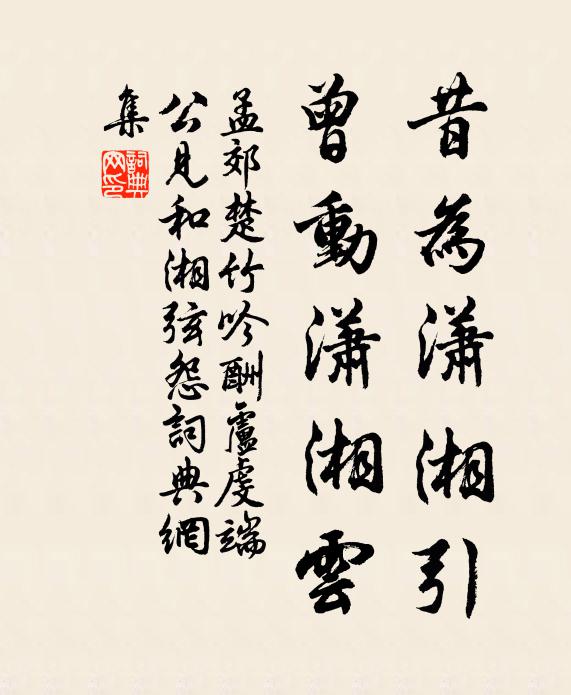 昔為瀟湘引
曾動瀟湘雲
孟郊楚竹吟酬盧虔端
公見和湘弦怨詞典網
集
詞典網印